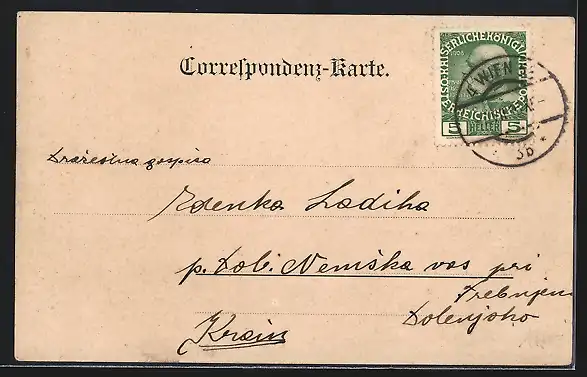 Correspondenz-Karte.
KAISERLICHE KÖNIGLICHE ÖSTERREICHISCHE POST
1908
5 HELLER 5
WIEN
38
Dražestna gospica
Zdenka Ladiha
p. Dob. Nemška vas pri
Trebnjem
Dolenjsko
Krain